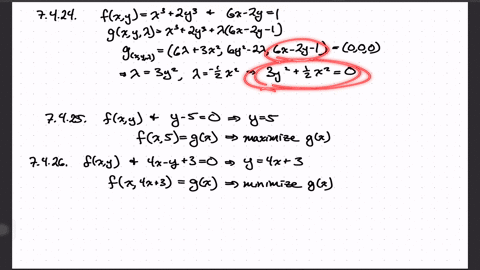 7.4.24. f(x,y) = x³+2y³ & 6x-2y=1
g(x,y,λ) = x³+2y³+λ(6x-2y-1)
g(x,y,λ) = (6λ+3x², 6y²-2λ, 6x-2y-1) = (0,0,0)
⇒ λ = 3y², λ = -½x² ⇒ 3y² + ½x² = 0
7.4.25. f(x,y) & y-5=0 ⇒ y=5
f(x,5) = g(x) ⇒ maximize g(x)
7.4.26. f(x,y) & 4x-y+3=0 ⇒ y=4x+3
f(x,4x+3) = g(x) ⇒ minimize g(x)